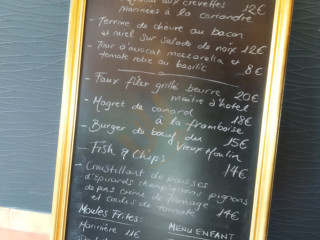 aux crevettes
marinées à la coriandre 12€
- Terrine de chèvre au bacon
et miel sur salade de noix 12€
- Tour d'avocat mozzarella et
tomate rotie au basilic 8€
- Faux filet grillé beurre 20€
maitre d'hôtel
- Magret de canard 18€
à la framboise
- Burger du boeuf du 15€
Vieux Moulin
- Fish & Chips 14€
- Croustillant de pousses
d'épinards champignons pignons
de pins crème de fromage
et coulis de tomate 14€
Moules Frites:
Marinière 11€
MENU ENFANT